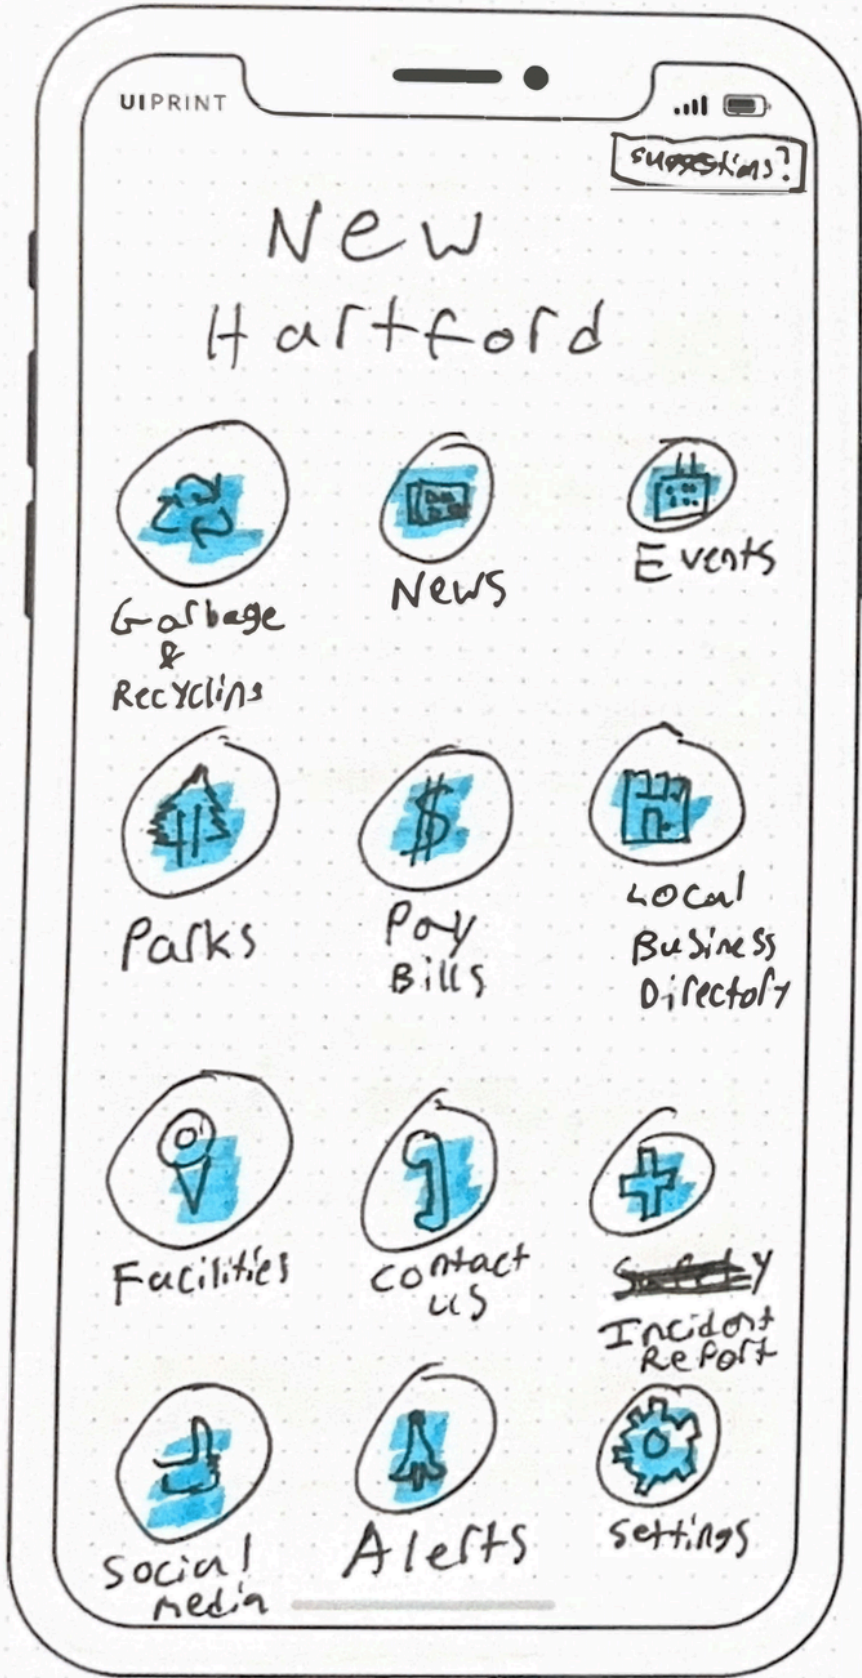 UIPRINT
suggestions?
New
Hartford
Garbage
&
Recycling
News
Events
Parks
Pay
Bills
Local
Business
Directory
Facilities
Contact
us
Safety
Incident
Report
Social
media
Alerts
Settings